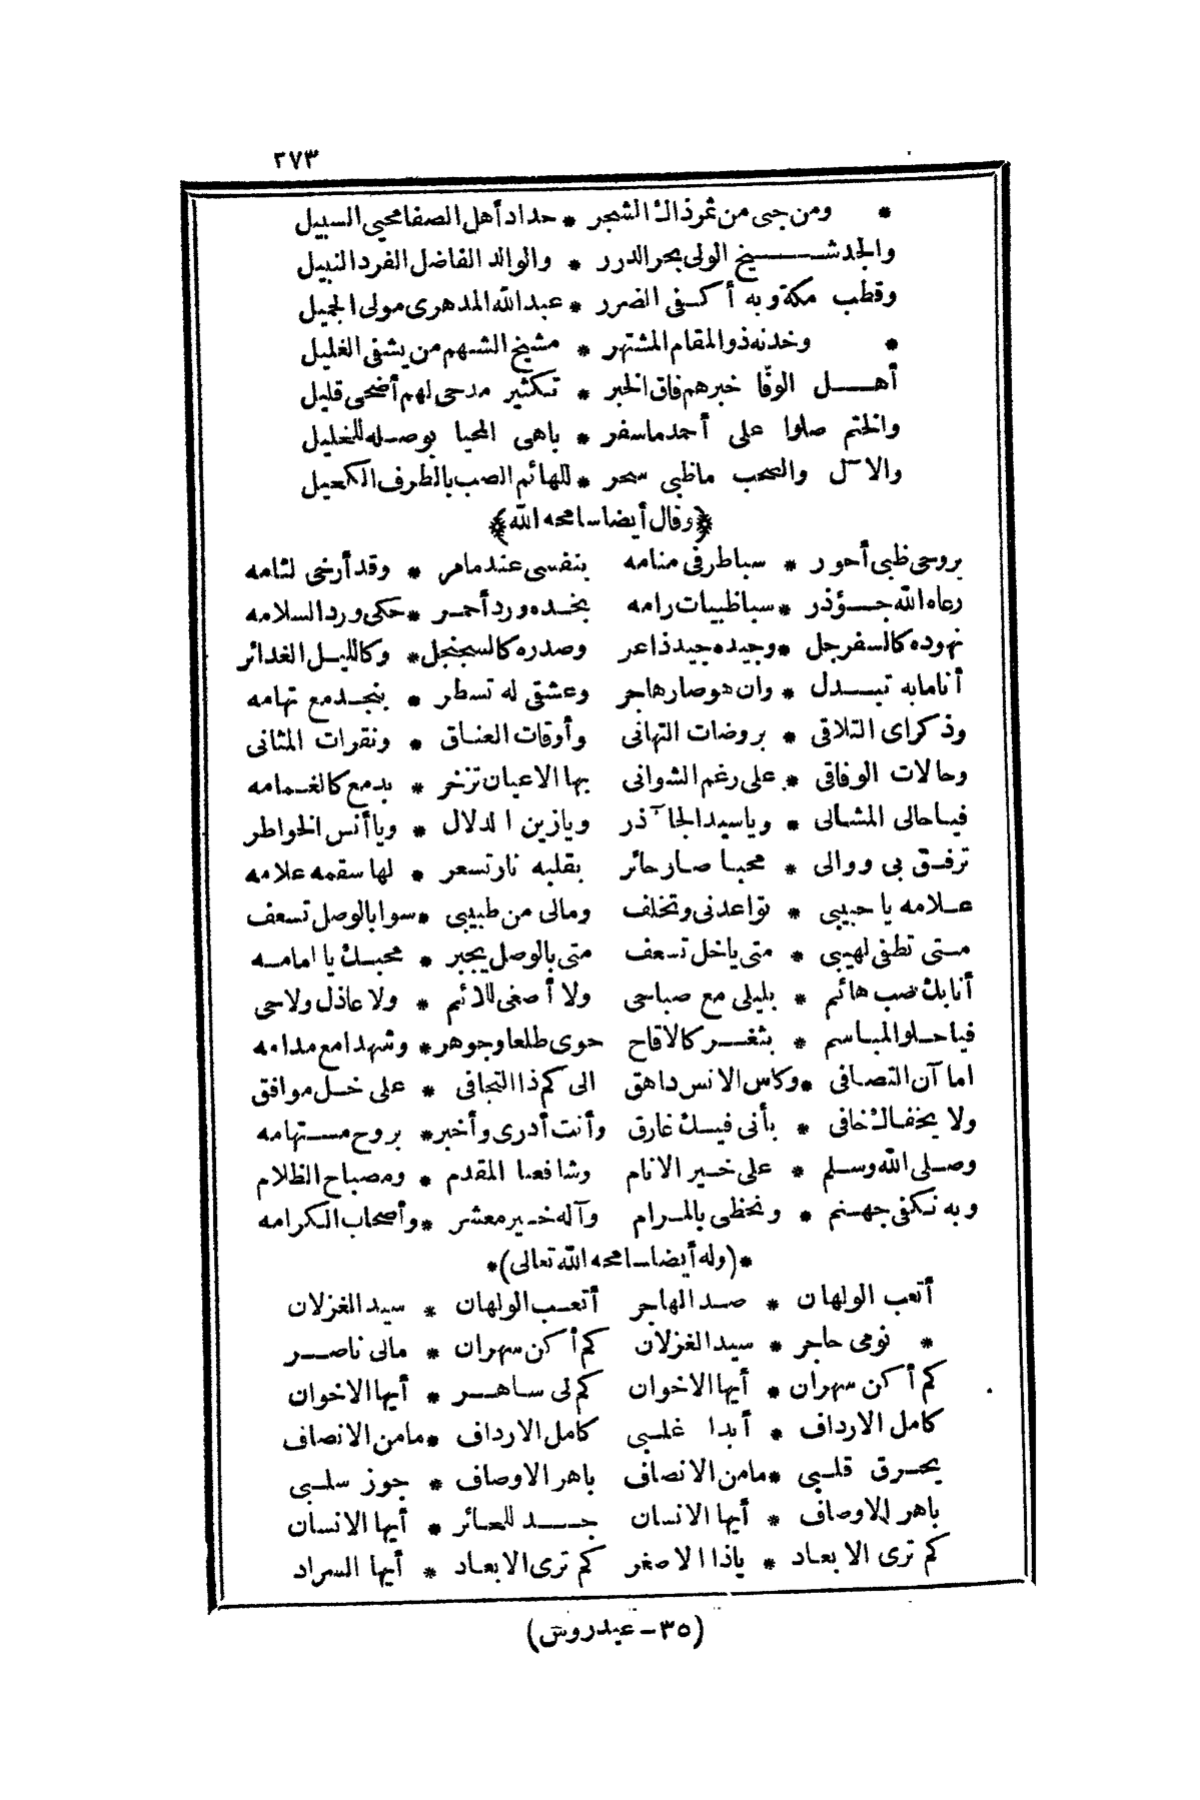 ٢٧٣
* ومن جى من ثمر ذاك الشجر * حداد أهل الصفا محيي السبيل
والجد شيخ الولى بحر الدرر * والوالد الفاضل الفرد النبيل
وقطب مكة وبه أكفى الضرر * عبد الله المدهرى مولى الجميل
* وخدنه ذو المقام المشتهر * مشيخ الشهم من يشفى الغليل
أهل الوفا خبرهم فاق الخبر * تكثير مدحى لهم أضحى قليل
والختم صلوا على أحمد ماسفر * باهى المحيا بوصله للخليل
والآل والصحب ماظبى سحر * للهائم الصب بالطرف الكحيل
﴿وقال أيضا سامحه الله﴾
بروحى ظبى أحور * سباطرفى منامه بنفسى عند مامر * وقد أرخى لثامه
رعاه الله جؤذر * سباظبيات رامه بخده ورد أحمر * حكى ورد السلامه
نهوده كالسفرجل * وجيده جيد ذاعر وصدره كالسجنجل * وكالليل الغدائر
أنا مابه تبدل * وان هو صار هاجر وعشقى له تسطر * بنجد مع تهامه
وذكراى التلاقى * بروضات التهانى وأوقات العناق * ونقرات المثانى
وحالات الوفاقى * على رغم الشوانى بها الاعيان تزخر * بدمع كالغمامه
فياحالى المشالى * وياسيد الجآذر ويازين الدلال * وياأنس الخواطر
ترفق بى ووالى * محبا صار حائر بقلبه نار تسعر * لها سقمه علامه
علامه يا حبيبى * تواعدنى وتخلف ومالى من طبيبى * سوا بالوصل تسعف
متى تطفى لهيبى * متى ياخل تسعف متى بالوصل يجبر * محبك يا امامه
أنا بك صب هائم * بليلى مع صباحى ولا أصغى للائم * ولا عاذل ولاحى
فياحلو المباسم * بثغر كالاقاح حوى طلعا وجوهر * وشهدا مع مدامه
اما آن التصافى * وكاس الانس داهق الى كم ذا التجافى * على خل موافق
ولا يخفاك خافى * بأنى فيك غارق وأنت أدرى وأخبر * بروح مستهامه
وصلى الله وسلم * على خير الانام وشافعنا المقدم * ومصباح الظلام
وبه نكفى جهنم * ونحظى بالمرام وآله خير معشر * وأصحاب الكرامه
*(وله أيضا سامحه الله تعالى)*
أتعب الولهان * صد الهاجر أتعب الولهان * سيد الغزلان
* نومى حاجر * سيد الغزلان كم أكن سهران * مالى ناصر
كم أكن سهران * أيها الاخوان كم لى ساهر * أيها الاخوان
كامل الارداف * أبدا غلبى كامل الارداف * مامن الانصاف
يحرق قلبى * مامن الانصاف باهر الاوصاف * جوز سلبى
باهر الاوصاف * أيها الانسان جد للحائر * أيها الانسان
كم ترى الابعاد * ياذا الاصغر كم ترى الابعاد * أيها السمراد
(٣٥ - عيدروس)